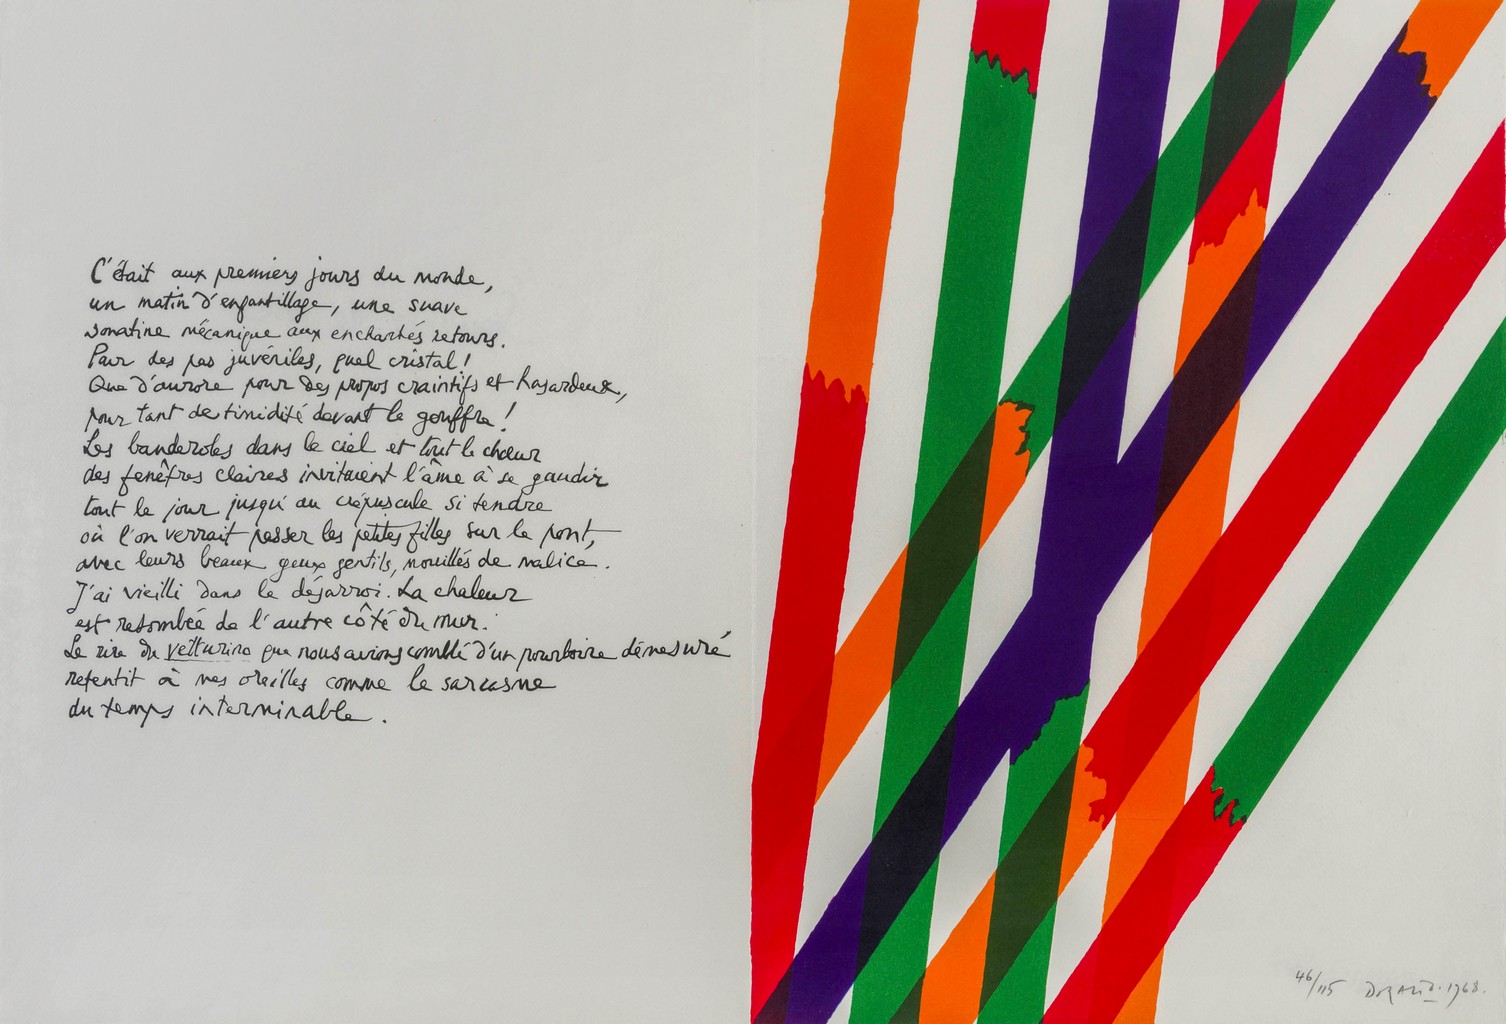 C'était aux premiers jours du monde,
un matin d'enfantillage, une suave
sonatine mécanique aux enchantés retours.
Pour des pas juvéniles, quel cristal !
Que d'aurore pour des propos craintifs et hasardeux,
pour tant de timidité devant le gouffre !
Les banderoles dans le ciel et tout le chœur
des fenêtres claires invitaient l'âme à se gaudir
tout le jour jusqu'au crépuscule si tendre
où l'on verrait passer les petites filles sur le pont,
avec leurs beaux yeux gentils, mouillés de malice.
J'ai vieilli dans le désarroi. La chaleur
est retombée de l'autre côté du mur.
Le rire du vetturino que nous avions comblé d'un pourboire démesuré
retentit à mes oreilles comme le sarcasme
du temps interminable.
46/115 Dorazio. 1968.